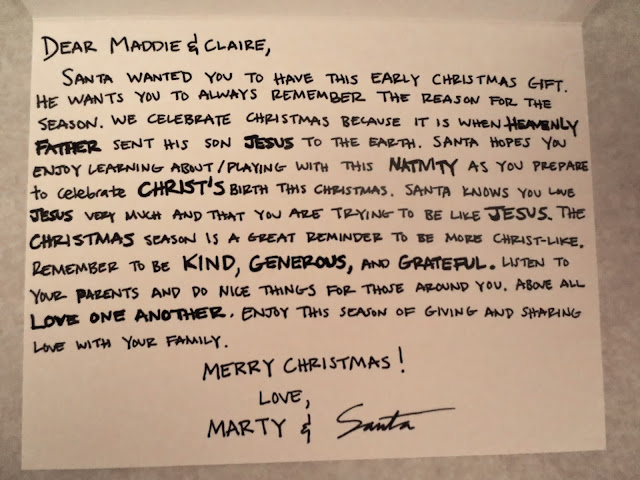 DEAR MADDIE & CLAIRE,
SANTA WANTED YOU TO HAVE THIS EARLY CHRISTMAS GIFT.
HE WANTS YOU TO ALWAYS REMEMBER THE REASON FOR THE
SEASON. WE CELEBRATE CHRISTMAS BECAUSE IT IS WHEN HEAVENLY
FATHER SENT HIS SON JESUS TO THE EARTH. SANTA HOPES YOU
ENJOY LEARNING ABOUT/PLAYING WITH THIS NATIVITY AS YOU PREPARE
to celebrate CHRIST'S BIRTH THIS CHRISTMAS. SANTA KNOWS YOU LOVE
JESUS VERY MUCH AND THAT YOU ARE TRYING TO BE LIKE JESUS. THE
CHRISTMAS SEASON IS A GREAT REMINDER TO BE MORE CHRIST-LIKE.
REMEMBER TO BE KIND, GENEROUS, AND GRATEFUL. LISTEN TO
YOUR PARENTS AND DO NICE THINGS FOR THOSE AROUND YOU. ABOVE ALL
LOVE ONE ANOTHER. ENJOY THIS SEASON OF GIVING AND SHARING
LOVE WITH YOUR FAMILY.
MERRY CHRISTMAS!
LOVE,
MARTY & Santa